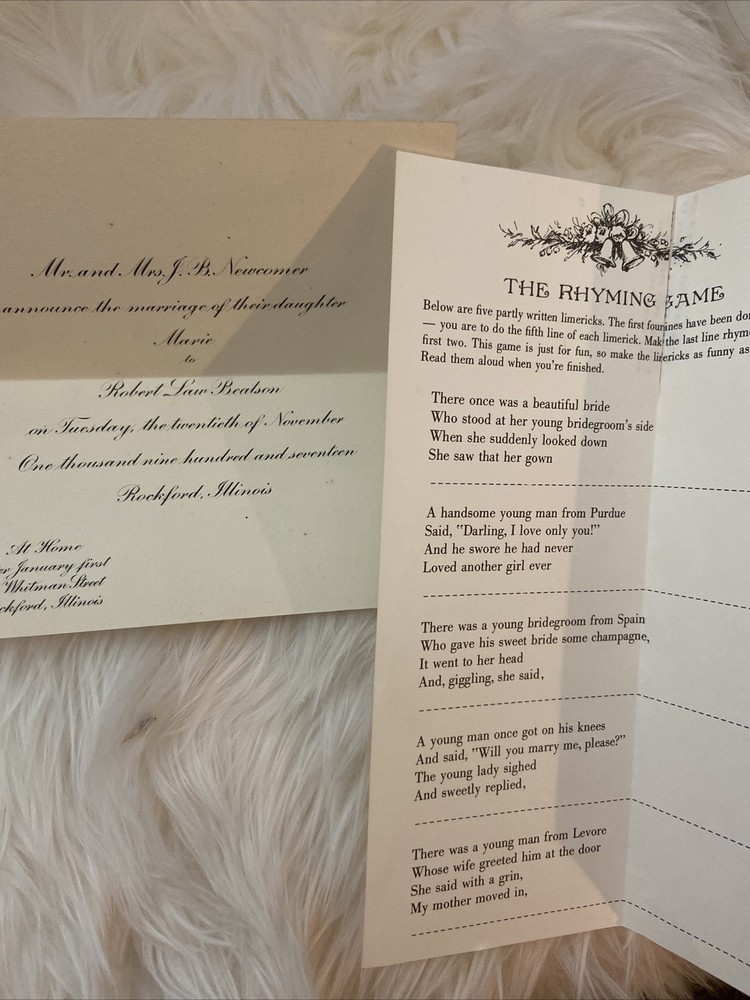 Mr. and Mrs. J. B. Newcomer
announce the marriage of their daughter
Marie
to
Robert Law Bealson
on Tuesday, the twentieth of November
One thousand nine hundred and seventeen
Rockford, Illinois
At Home
January first
Whitman Street
Illinois
THE RHYMING GAME
Below are five partly written limericks. The first four lines have been
— you are to do the fifth line of each limerick. Make the last line
first two. This game is just for fun, so make the limericks as funny as
Read them aloud when you're finished.
There once was a beautiful bride
Who stood at her young bridegroom's side
When she suddenly looked down
She saw that her gown
A handsome young man from Purdue
Said, "Darling, I love only you!"
And he swore he had never
Loved another girl ever
There was a young bridegroom from Spain
Who gave his sweet bride some champagne,
It went to her head
And, giggling, she said,
A young man once got on his knees
And said, "Will you marry me, please?"
The young lady sighed
And sweetly replied,
There was a young man from Levore
Whose wife greeted him at the door
She said with a grin,
My mother moved in,